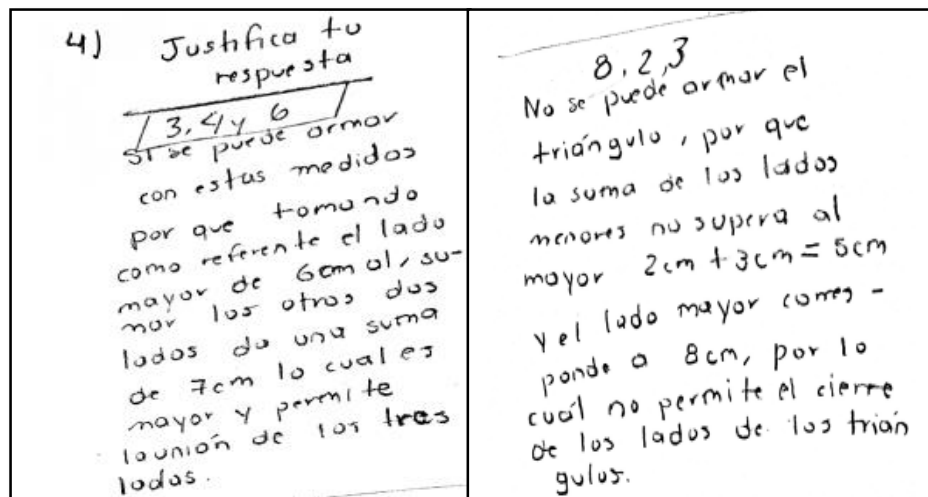 4) Justifica tu
respuesta
3, 4 y 6
Si se puede armar
con estas medidas
por que tomando
como referente el lado
mayor de 6cm al, su-
mar los otros dos
lados da una suma
de 7cm lo cual es
mayor y permite
la unión de los tres
lados.
8, 2, 3
No se puede armar el
triángulo, por que
la suma de los lados
menores no supera al
mayor 2cm + 3cm = 5cm
y el lado mayor corres-
ponde a 8cm, por lo
cuál no permite el cierre
de los lados de los trian
gulos.